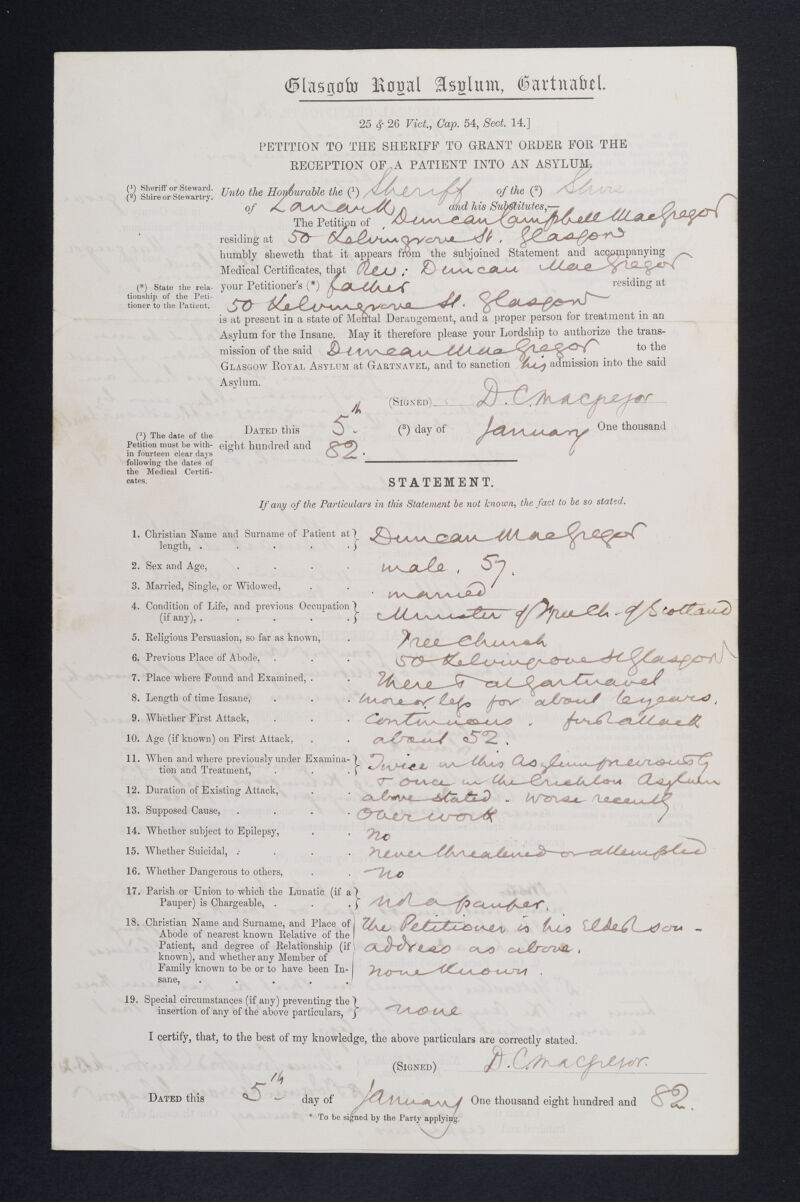 Glasgow Royal Asylum, Gartnabel.
25 & 26 Vict., Cap. 54, Sect. 14.]
PETITION TO THE SHERIFF TO GRANT ORDER FOR THE
RECEPTION OF A PATIENT INTO AN ASYLUM.
(¹) Sheriff or Steward.
(²) Shire or Stewartry.
Unto the Honourable the (¹) Sheriff of the (²) Shire
of Lanark and his Substitutes,—
The Petition of Duncan Campbell MacGregor
residing at 50 Kelvingrove St. Glasgow
humbly sheweth that it appears from the subjoined Statement and accompanying
Medical Certificates, that Rev: Duncan MacGregor
(*) State the rela-
tionship of the Peti-
tioner to the Patient.
your Petitioner's (*) father residing at
50 Kelvingrove St. Glasgow
is at present in a state of Mental Derangement, and a proper person for treatment in an
Asylum for the Insane. May it therefore please your Lordship to authorize the trans-
mission of the said Duncan MacGregor to the
GLASGOW ROYAL ASYLUM at GARTNAVEL, and to sanction his admission into the said
Asylum.
(SIGNED) D. C. Macgregor
(³) The date of the
Petition must be with-
in fourteen clear days
following the dates of
the Medical Certifi-
cates.
DATED this 5th (³) day of January One thousand
eight hundred and 82.
STATEMENT.
If any of the Particulars in this Statement be not known, the fact to be so stated.
1. Christian Name and Surname of Patient at
length, . . . . . } Duncan MacGregor
2. Sex and Age, . . . . male. 57.
3. Married, Single, or Widowed, . . . married
4. Condition of Life, and previous Occupation
(if any), . . . . . } Minister of Free Ch. of Scotland
5. Religious Persuasion, so far as known, . Free Church
6. Previous Place of Abode, . . . 50 Kelvingrove St Glasgow
7. Place where Found and Examined, . . There & at Gartnavel
8. Length of time Insane, . . . more or less for about 6 years.
9. Whether First Attack, . . . Continuous. first attack
10. Age (if known) on First Attack, . . about 52.
11. When and where previously under Examina-
tion and Treatment, . . . } Twice in this Asylum previously
& once in the Crichton Asylum
12. Duration of Existing Attack, . . above stated. Worse recently
13. Supposed Cause, . . . . Over work
14. Whether subject to Epilepsy, . . no
15. Whether Suicidal, . . . . never threatened or attempted
16. Whether Dangerous to others, . . no
17. Parish or Union to which the Lunatic (if a
Pauper) is Chargeable, . . . } not a pauper.
18. Christian Name and Surname, and Place of
Abode of nearest known Relative of the
Patient, and degree of Relationship (if
known), and whether any Member of
Family known to be or to have been In-
sane, . . . . . .
The Petitioner is his Eldest son -
address as above.
none known.
19. Special circumstances (if any) preventing the
insertion of any of the above particulars, } none
I certify, that, to the best of my knowledge, the above particulars are correctly stated.
(SIGNED) D. C. Macgregor.
DATED this 5th day of January One thousand eight hundred and 82.
* To be signed by the Party applying.